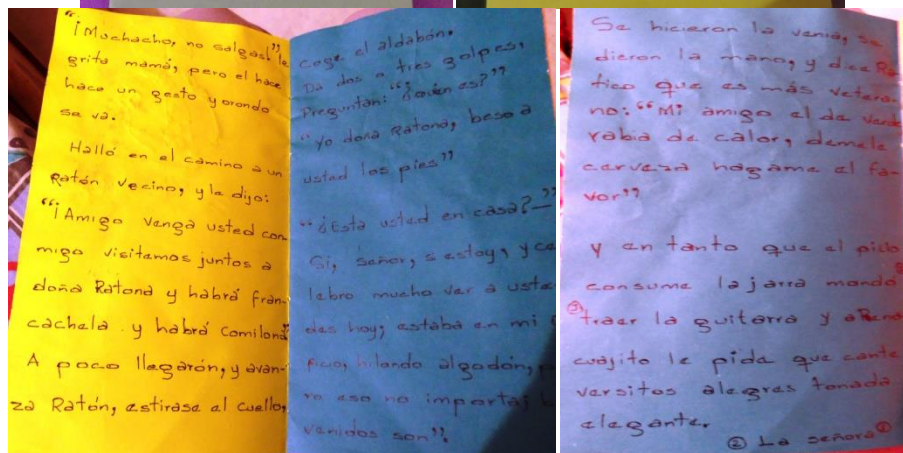 "¡Muchacho, no salgas!" le
grita mamá, pero el hace
hace un gesto y orondo
se va.
Halló en el camino a un
Ratón vecino, y le dijo:
"¡Amigo venga usted con-
migo visitamos juntos a
doña Ratona y habrá fran-
cachela y habrá comilona"
A poco llegarón, y avan-
za Ratón, estirase el cuello,
coge el aldabón.
Da dos o tres golpes,
Preguntan: "¿Quien es?"
"Yo doña Ratona, beso a
usted los pies"
"¿Está usted en casa?—"
Sí, señor, s estoy, y ce
lebro mucho ver a uste
des hoy; estaba en mi
ficio, hilando algodón, p
ro eso no importa; b
venidos son".
Se hicieron la venia, se
dieron la mano, y dice Ra
tico que es más vetera-
no: "Mi amigo el de verde
rabia de calor, demele
cerveza hágame el fa-
vor"
y en tanto que el pillo
consume la jarra mandó
③traer la guitarra y a Rena
cuajito le pide que cante
versitos alegres tonada
elegante.
② La señora①